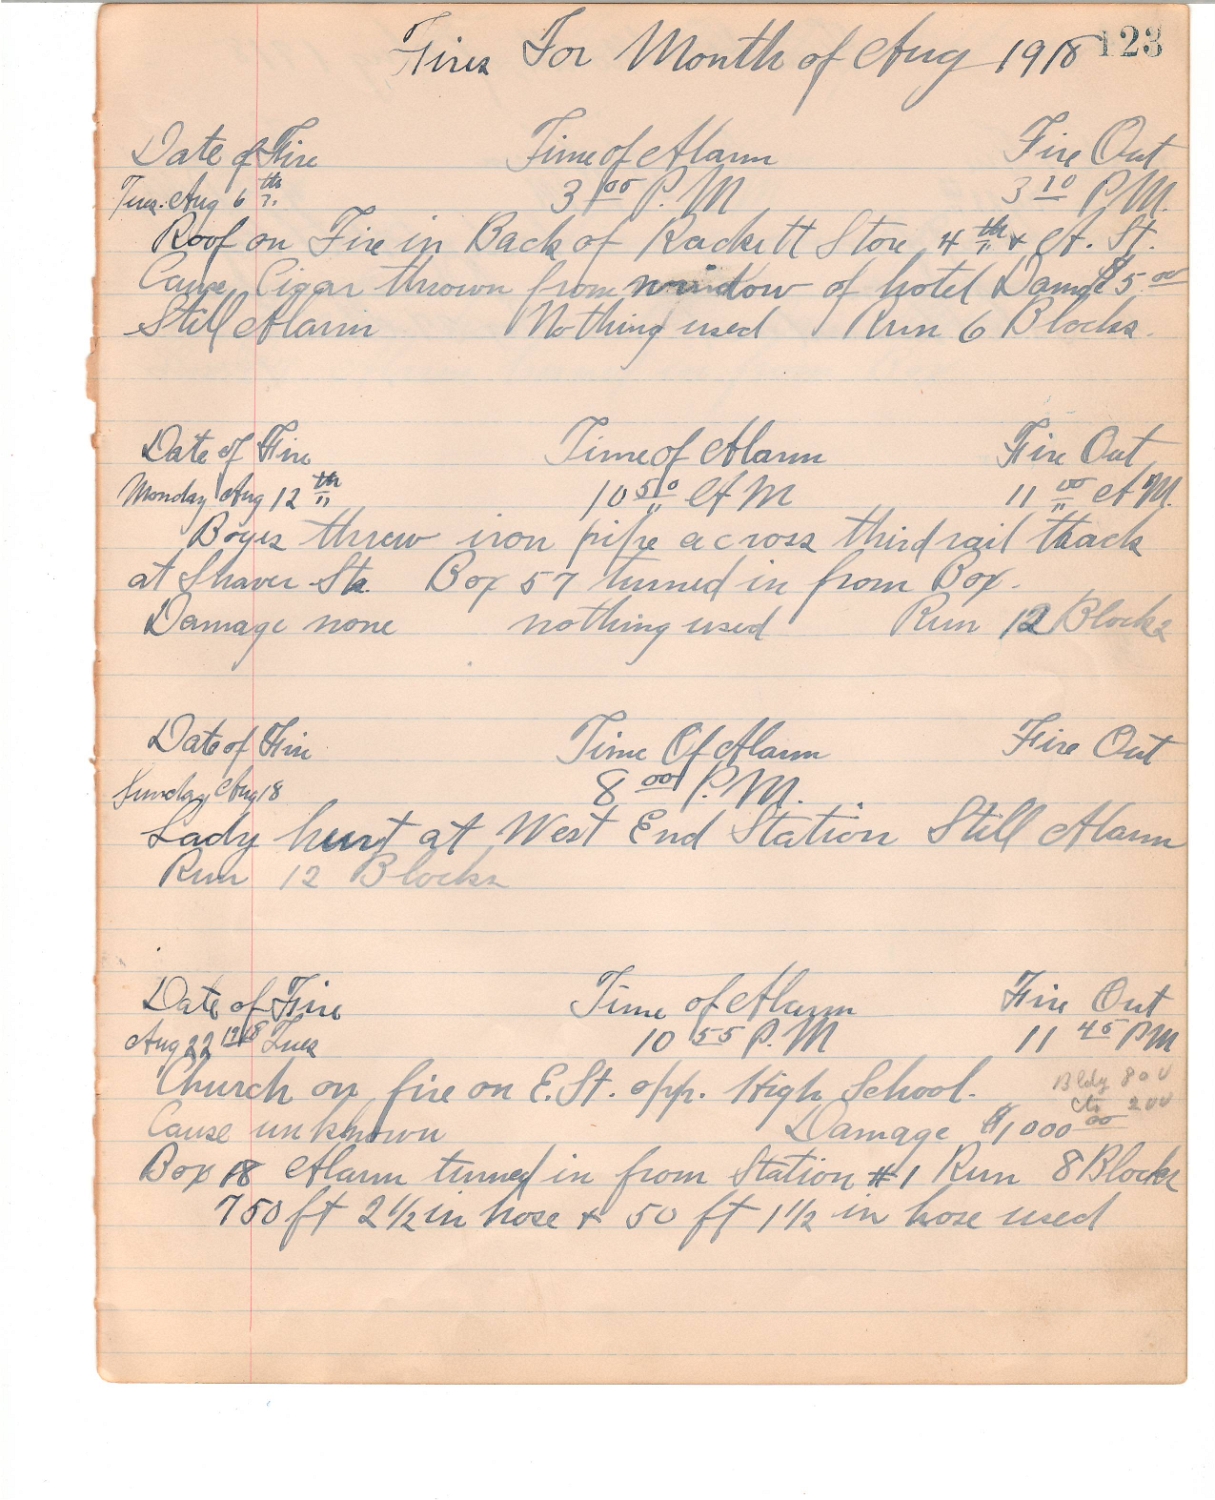 Fires For Month of Aug 1918 123
Date of Fire Time of Alarm Fire Out
Tues. Aug 6th 3 00 P.M 3 10 P.M.
Roof on Fire in Back of Rackett Store 4th & A. St.
Cause Cigar thrown from window of hotel Damg $5 00
Still Alarm Nothing used Run 6 Blocks.
Date of Fire Time of Alarm Fire Out
Monday Aug 12th 10 50 A M 11 00 A M.
Boyes threw iron pipe across third rail track
at Shaver Sta. Box 57 turned in from Box.
Damage none nothing used Run 12 Blocks
Date of Fire Time Of Alarm Fire Out
Sunday Aug 18 8 00 P.M.
Lady hurt at West End Station Still Alarm
Run 12 Blocks
Date of Fire Time of Alarm Fire Out
Aug 22 1918 10 55 P.M 11 45 PM
Church on fire on E. St. opp. High School. Bldg 800
Cts 200
Cause unknown Damage $1000 00
Box 18 Alarm turned in from Station #1 Run 8 Blocks
750 ft 2 1/2 in hose & 50 ft 1 1/2 in hose used